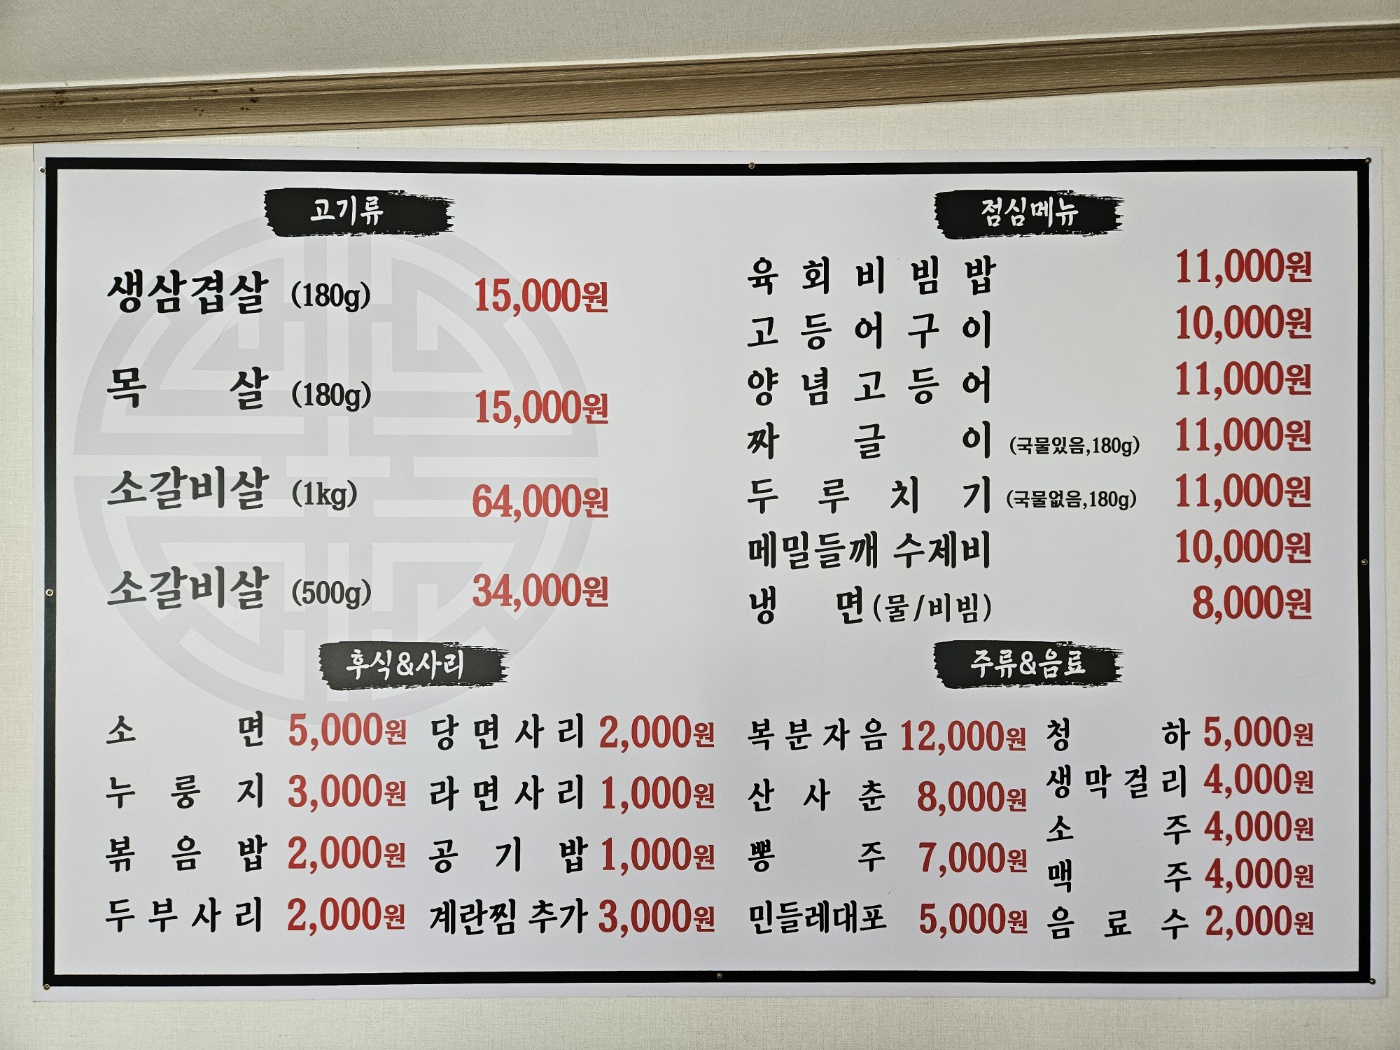 고기류
생삼겹살 (180g) 15,000원
목 살 (180g) 15,000원
소갈비살 (1kg) 64,000원
소갈비살 (500g) 34,000원
점심메뉴
육회비빔밥 11,000원
고등어구이 10,000원
양념고등어 11,000원
짜글이 (국물있음,180g) 11,000원
두루치기 (국물없음,180g) 11,000원
메밀들깨 수제비 10,000원
냉면(물/비빔) 8,000원
후식&사리
소면 5,000원 당면사리 2,000원
누룽지 3,000원 라면사리 1,000원
볶음밥 2,000원 공기밥 1,000원
두부사리 2,000원 계란찜 추가 3,000원
주류&음료
복분자음 12,000원
산사춘 8,000원
뽕주 7,000원
민들레대포 5,000원
청하 5,000원
생막걸리 4,000원
소주 4,000원
맥주 4,000원
음료수 2,000원